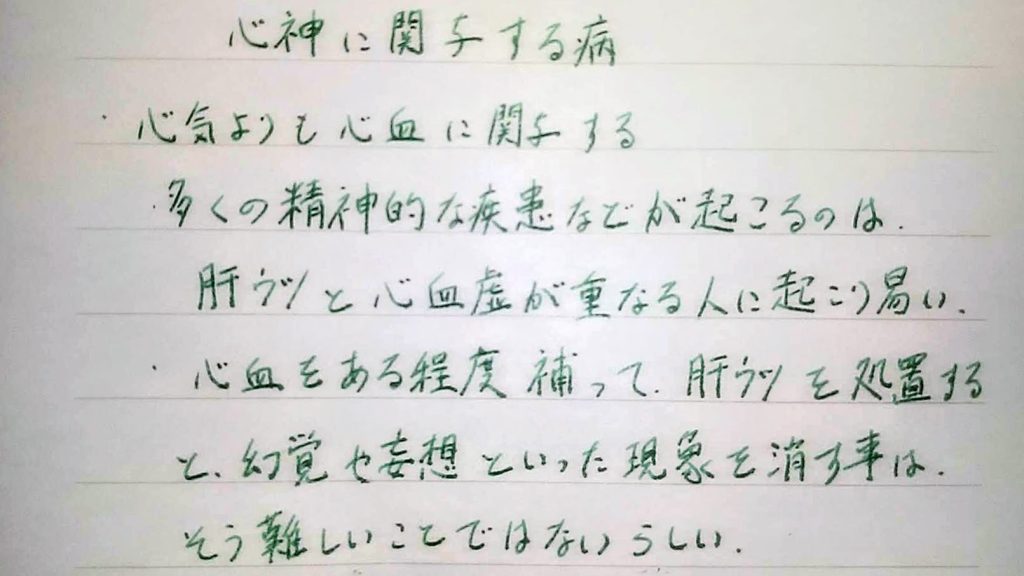 心神に関与する病
・心気よりも心血に関与する
・多くの精神的な疾患などが起こるのは、
肝ウツと心血虚が重なる人に起こり易い。
・心血をある程度補って、肝ウツを処置する
と、幻覚や妄想といった現象を消す事は、
そう難しいことではないらしい。